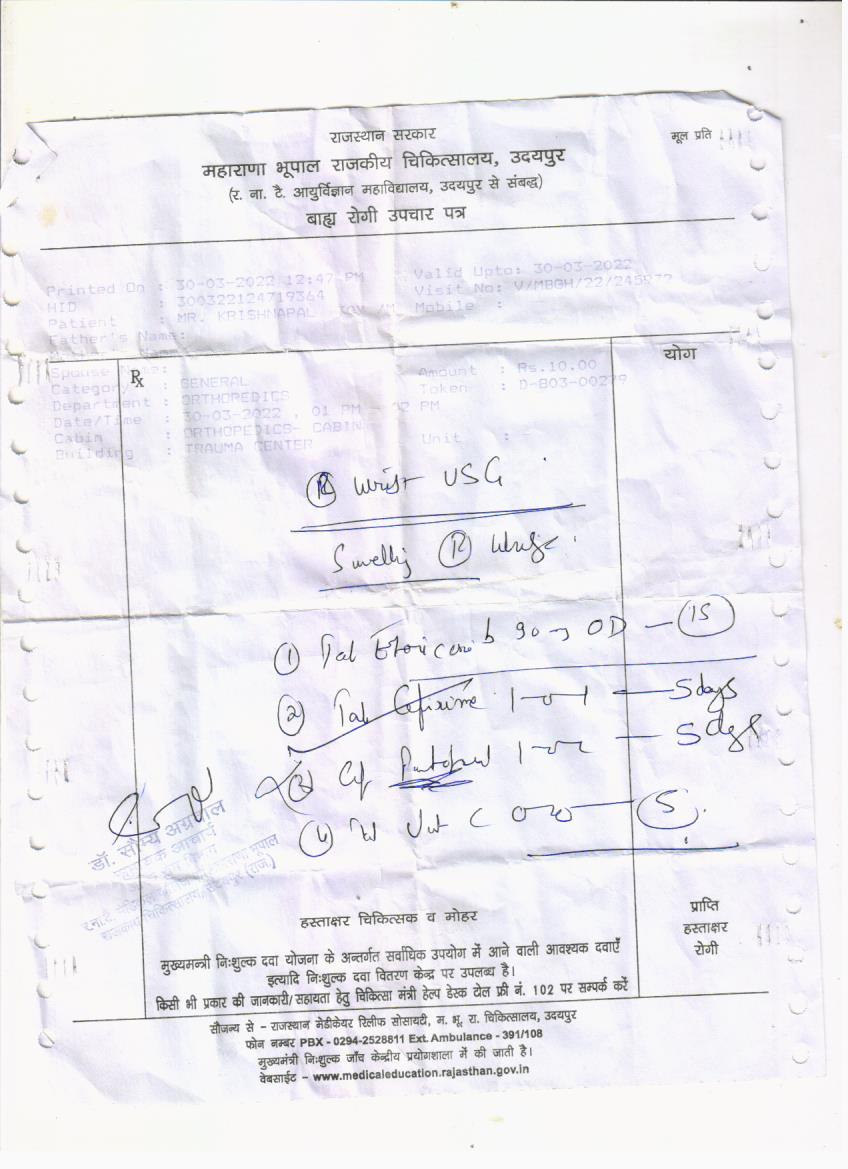 राजस्थान सरकार
मूल प्रति
महाराणा भूपाल राजकीय चिकित्सालय, उदयपुर
(र. ना. टै. आयुर्विज्ञान महाविद्यालय, उदयपुर से संबद्ध)
बाह्य रोगी उपचार पत्र
Printed On : 30-03-2022 12:47 PM Valid Upto: 30-03-2022
HID : 300322124719364 Visit No: V/MBGH/22/
Patient : MR. KRISHNAPAL /M Mobile :
Father's Name:
योग
Spouse Name: Amount : Rs.10.00
℞
Category : GENERAL Token : D-B03-00279
Department : ORTHOPEDICS
Date/Time : 30-03-2022 , 01 PM - 02 PM
Cabin : ORTHOPEDICS- CABIN Unit : -
Building : TRAUMA CENTER
(R) Wrist USG
Swelling (R) Wrist
(1) Tab 90 OD — (15)
(2) Tab Cefixime 1-0-1 — 5 days
(3) — 5 days
(4) C — (5)
डॉ. सौम्य अग्रवाल
हस्ताक्षर चिकित्सक व मोहर
प्राप्ति
हस्ताक्षर
रोगी
मुख्यमन्त्री निःशुल्क दवा योजना के अन्तर्गत सर्वाधिक उपयोग में आने वाली आवश्यक दवाएँ
इत्यादि निःशुल्क दवा वितरण केन्द्र पर उपलब्ध है।
किसी भी प्रकार की जानकारी/सहायता हेतु चिकित्सा मंत्री हेल्प डेस्क टोल फ्री नं. 102 पर सम्पर्क करें
सौजन्य से – राजस्थान मेडीकेयर रिलीफ सोसायटी, म. भू. रा. चिकित्सालय, उदयपुर
फोन नम्बर PBX - 0294-2528811 Ext. Ambulance - 391/108
मुख्यमंत्री निःशुल्क जाँच केन्द्रीय प्रयोगशाला में की जाती है।
वेबसाईट – www.medicaleducation.rajasthan.gov.in